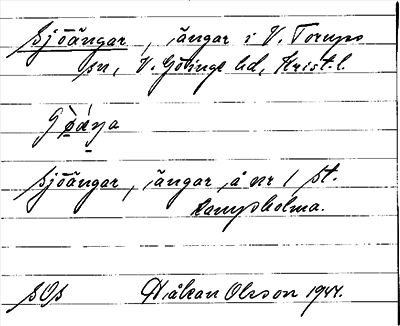 Sjöängar, ängar i V. Torups
sn, V. Göinge hd, Krist. l.
Sjöängar, ängar, å nr 1 St.
Kampholma.
SOS Håkan Olsson 1944.